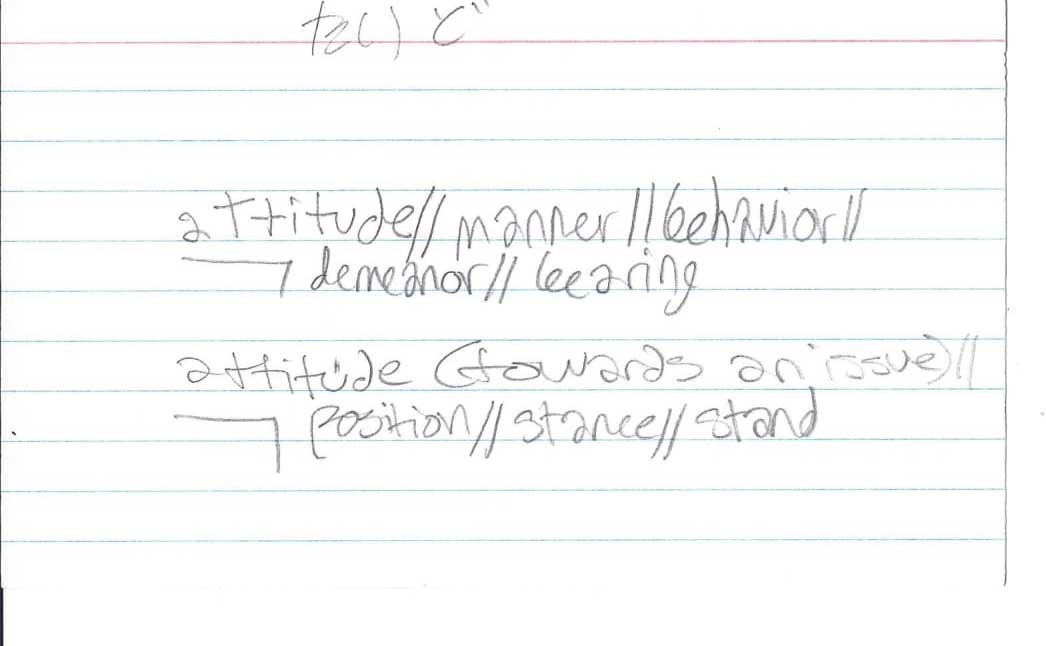 たいど
attitude// manner// behavior//
demeanor// bearing
attitude (towards an issue)//
position// stance// stand